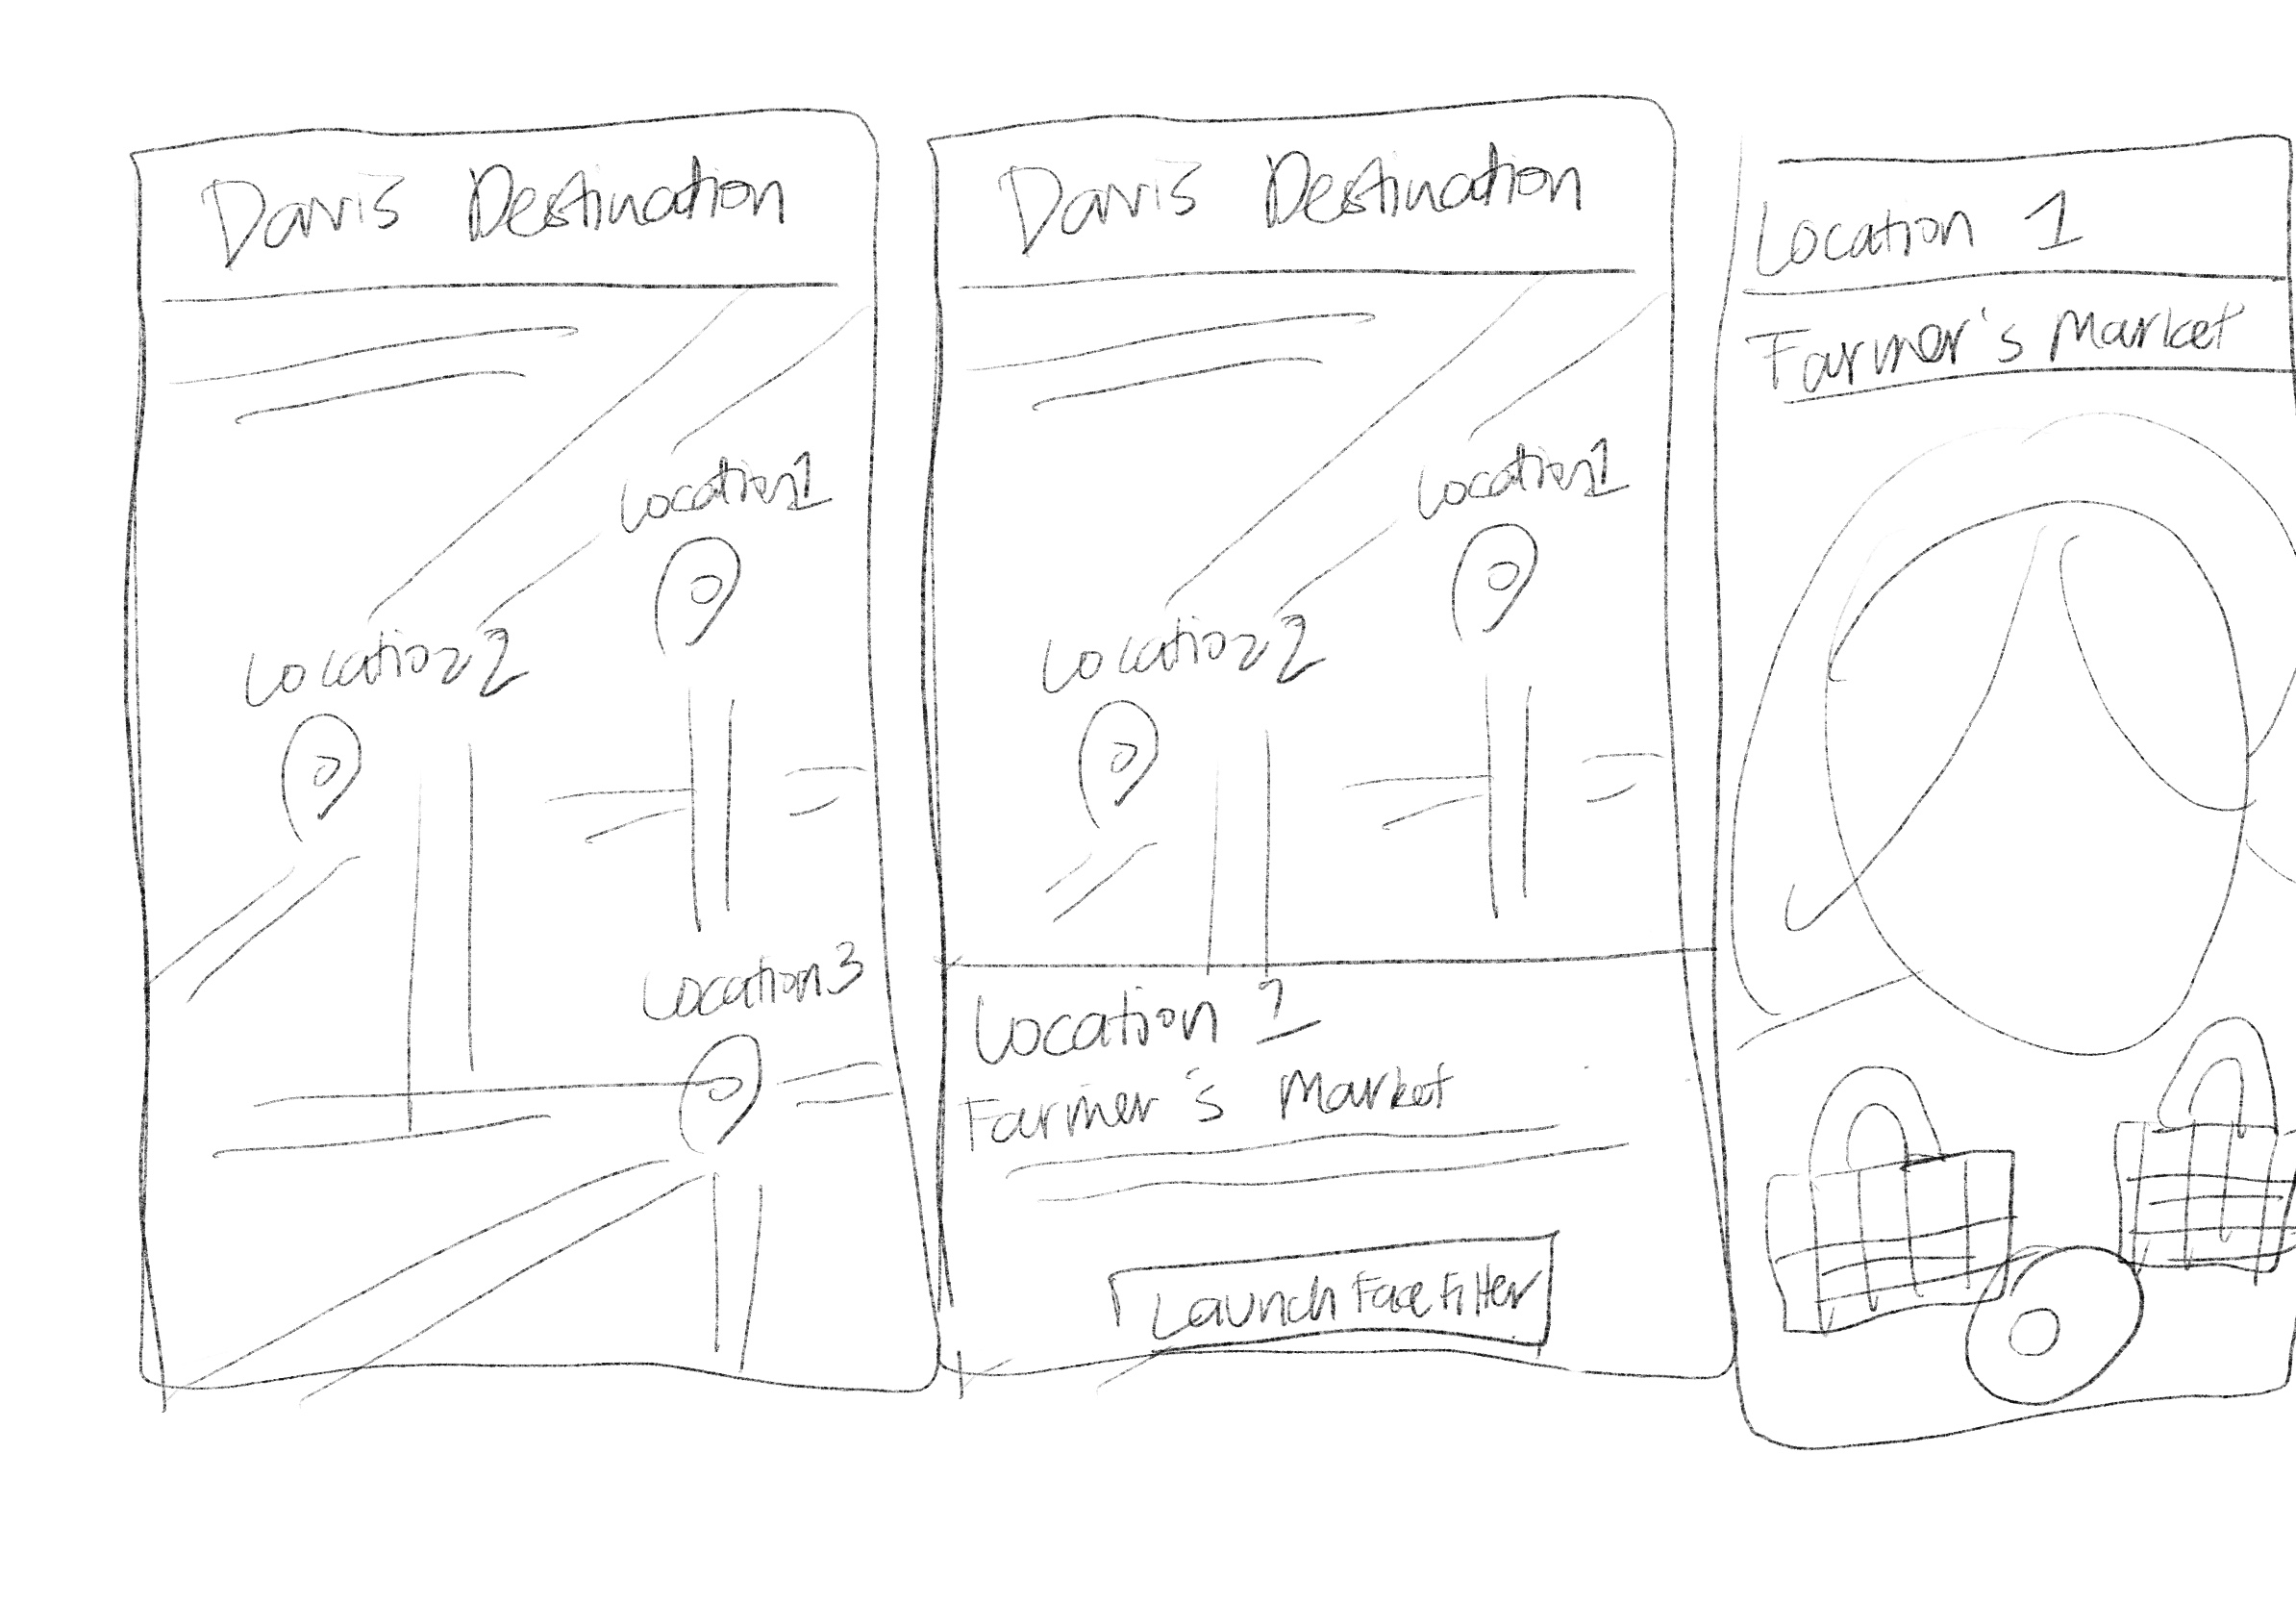 Davis Destination
Location 1
Location 2
Location 3
Davis Destination
Location 1
Location 2
Location 1
Farmer's Market
Launch Face Filter
Location 1
Farmer's Market